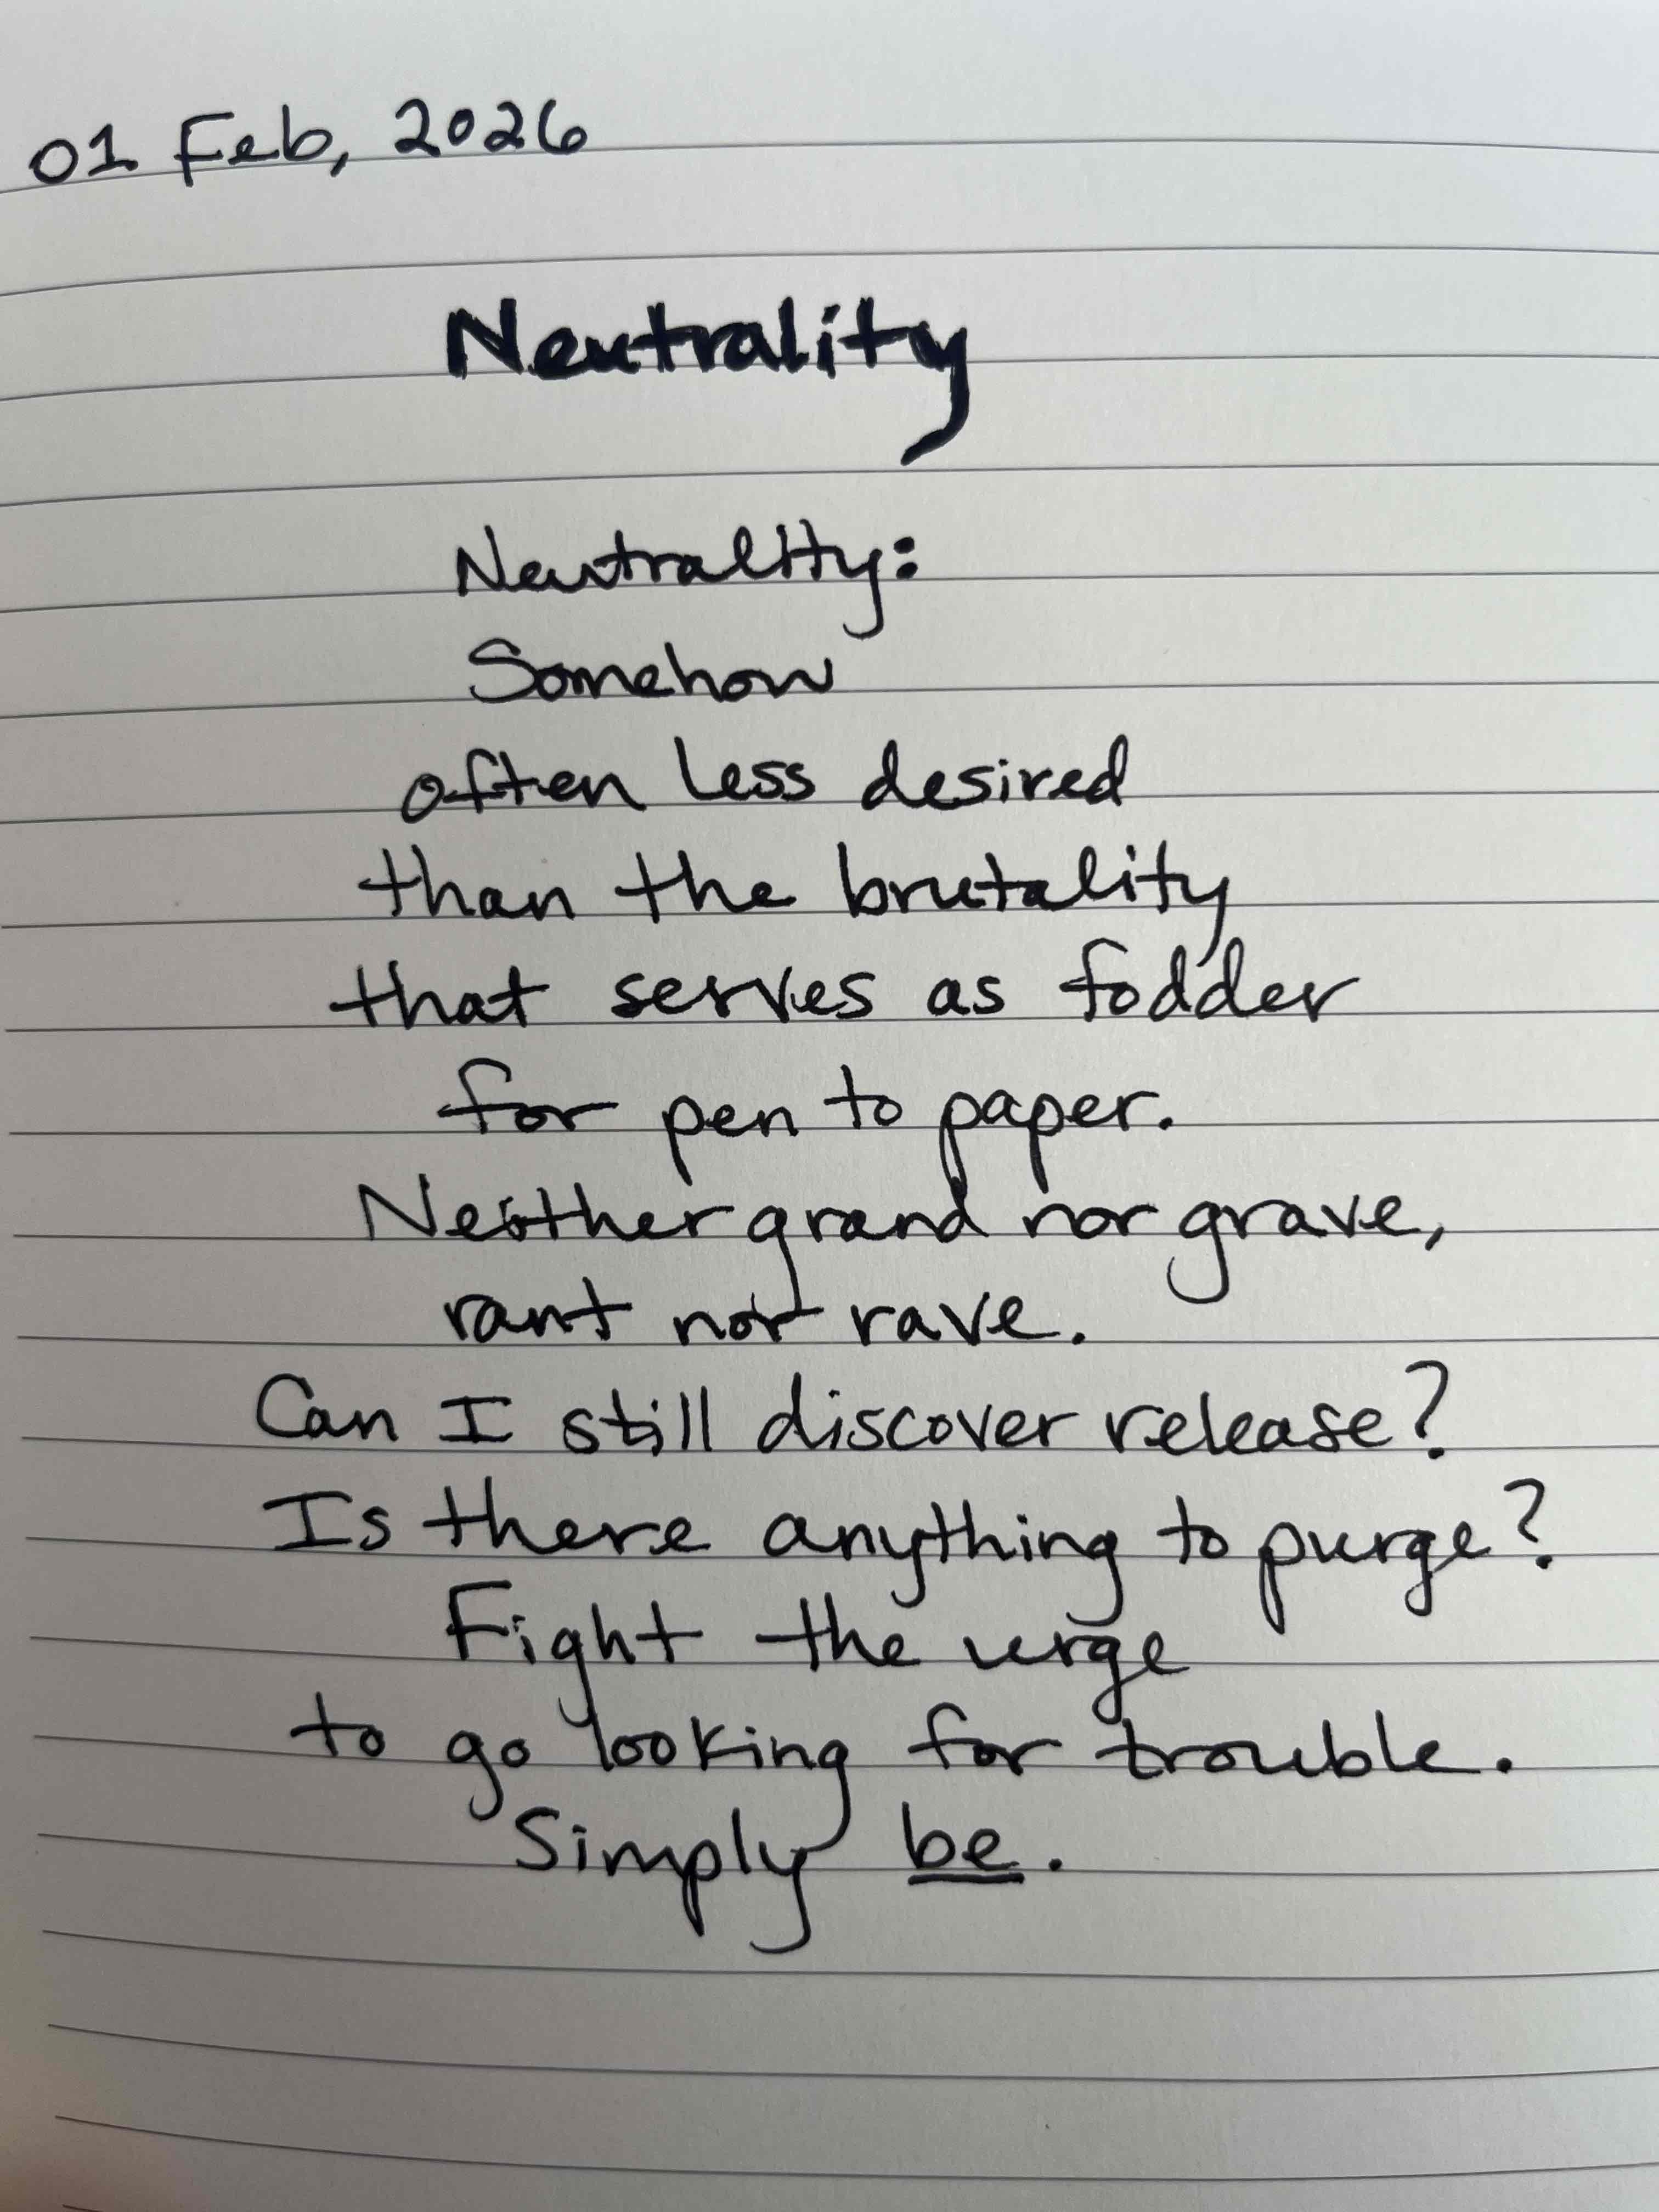 01 Feb, 2026
Neutrality
Neutrality:
Somehow
often less desired
than the brutality
that serves as fodder
for pen to paper.
Neither grand nor grave,
rant nor rave.
Can I still discover release?
Is there anything to purge?
Fight the urge
to go looking for trouble.
Simply be.